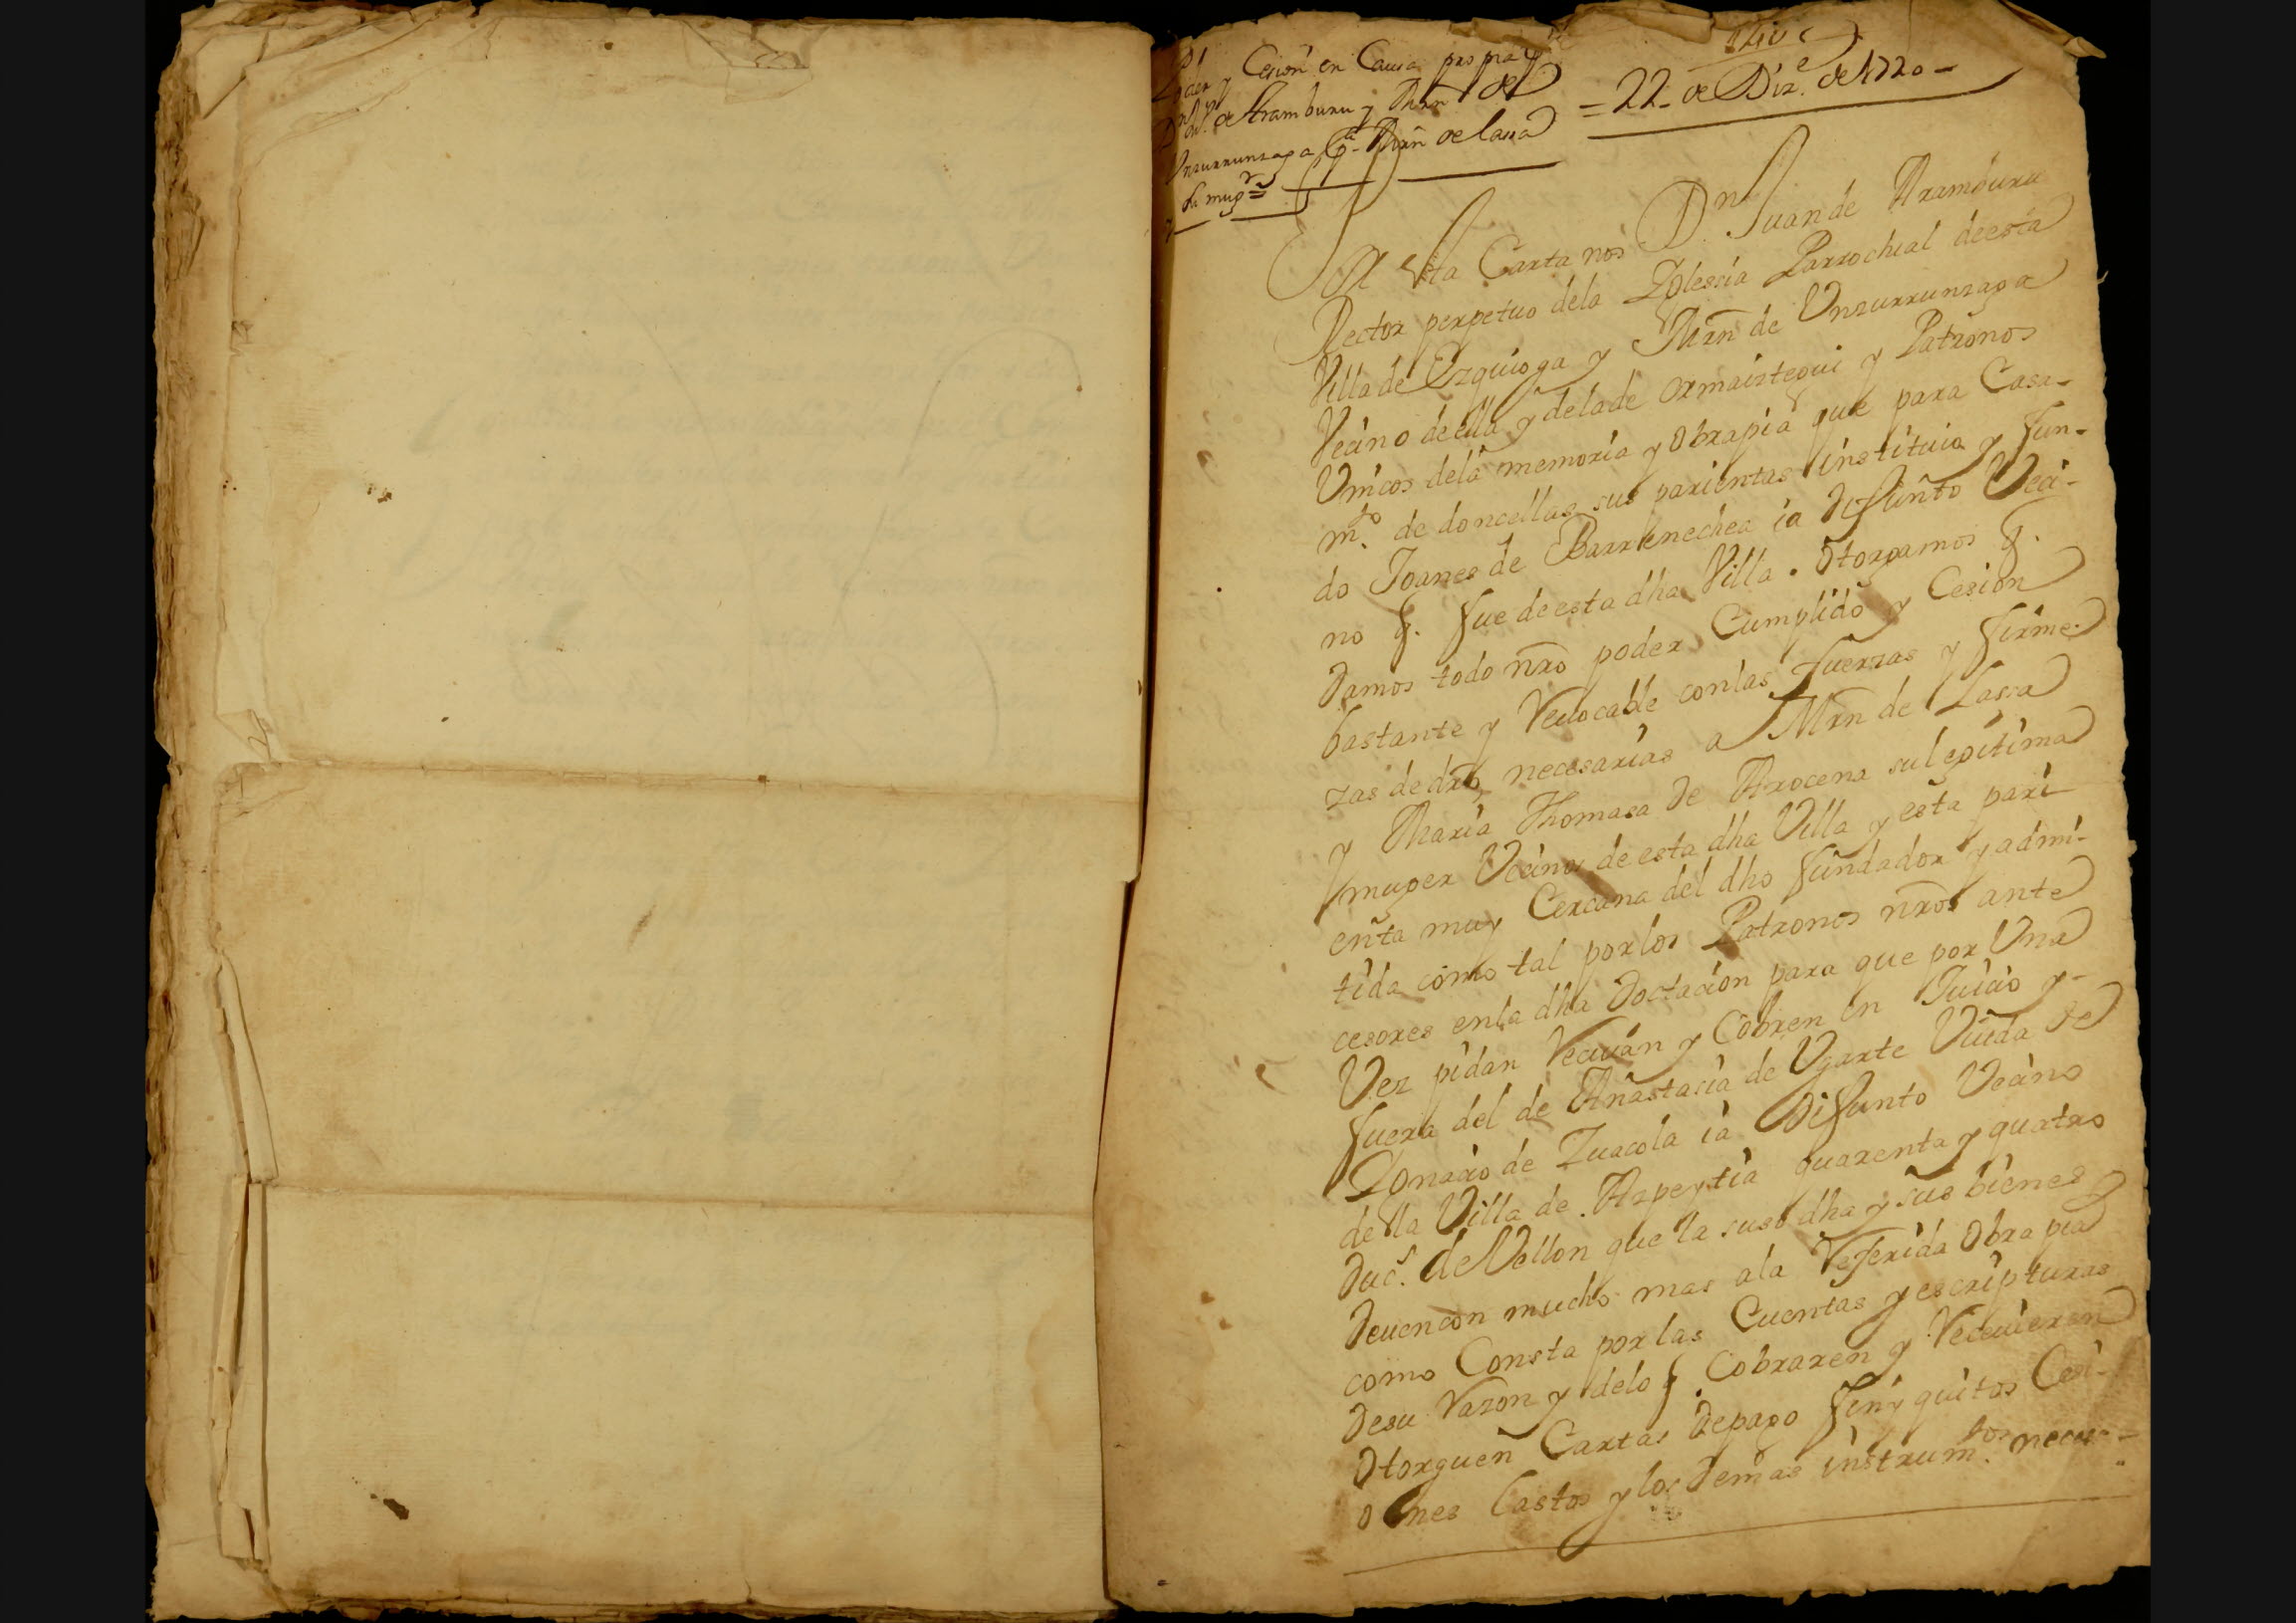 Poder y Cesion en Causa propia
Dn Jun de Aramburu y Mrn de
Unzurrunzaga Pa Mrn de lassa
y su mugr =
= 22 - de Dize. de 1720 -
En esta Carta nos Dn. Juan de Aramburu
Rector perpetuo dela Yglessia Parrochial deesta
Villa de Ezquioga y Mrn de Unzurrunzaga
Vecino deella y delade Ormaiztegui y Patronos
Unicos dela memoria y obrapia que para Casa-
mto. de doncellas sus parientas instituio y fun-
do Joanes de Barrenechea ia defunto Veci-
no q. fue deesta dha Villa. Otorgamos q.
Damos todo nro poder Cumplido y Cesion
bastante y Reuocable conlas fuerzas y firme-
zas dedro necesarias a Mrn de Lassa
y Maria Thomasa de Arocena su legitima
muger Vecinos deesta dha Villa y esta pari-
enta muy Cercana del dho fundador y admi-
tida como tal porlos Patronos nros ante
cesores enla dha Dotacion para que por Una
Vez pidan Reciuan y Cobren en Juicio y-
fuera del de Anastasia de Ugarte Viuda de
Ignacio de Zuacola ia Difunto Vecino
dela Villa de Azpeytia quarenta y quatro
Ducs. de Vellon que la suso dha y sus bienes
Deuencon mucho mas ala Referida Obra pia
como Consta porlas Cuentas y escripturas
Desu Razon y delo q. Cobraren y Reciuieren
Otorguen Cartas depago finyquitos Cesi-
ones lastos y los Demas instrumtos. neces-